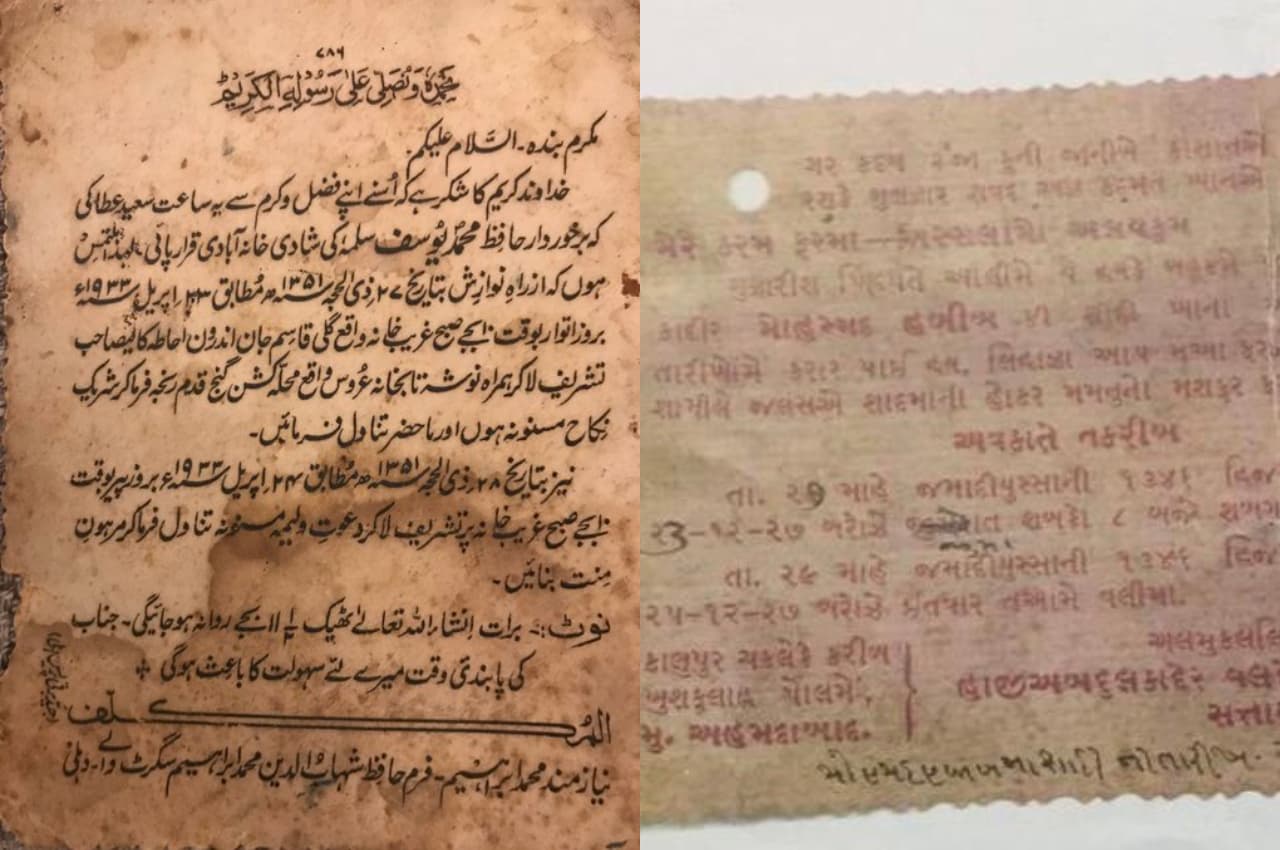 ۷۸۶
نحمدہٗ وَنُصَلِّی عَلیٰ رَسُوْلِہِ الْکَرِیْمْ
مکرم بندہ۔ السَّلام علیکم
خداوند کریم کا شکر ہے کہ اُسنے اپنے فضل و کرم سے یہ ساعت سعید عطا کی
کہ برخوردار حافظ محمدؐ یُوسف سلمہٗ کی شادی خانہ آبادی قرار پائی، لہٰذا ملتمس
ہوں کہ از راہِ نوازش بتاریخ ۲۷؍ ذی الحجہ ۱۳۵۱ سنہ ھ مُطابق ۲۳؍ اپریل سنہ ۱۹۳۳ء
بروز اتوار بوقت ۱۰ بجے صبح غریب خانہ واقع گلی قاسم جان اندرون احاطہ کالیصاحب
تشریف لا کر ہمراہ نوشہ تابخانہ عُروس واقع محلّہ کشن گنج قدم رنجہ فرما کر شریک
نِکاح مسنونہ ہوں اور ماحضر تناول فرمائیں۔
نیز بتاریخ ۲۸؍ ذی الحجہ ۱۳۵۱ سنہ ھ مُطابق ۲۴؍ اپریل سنہ ۱۹۳۳ء بروز پیر بوقت
۱۰ بجے صبح غریب خانہ پر تشریف لا کر دعوتِ ولیمہ مسنونہ تناول فرما کر مرہون
مِنت بنائیں۔
نوٹ:۔ برات اِنشاء اللہ تعالےٰ ٹھیک ۱۱ بجے روانہ ہو جائیگی۔ جناب
کی پابندئ وقت میرے لئے سہولت کا باعث ہو گی
المُکلّف
نیاز مند محمد ابراہیم۔ فرم حافظ شہاب الدین محمد ابراہیم سگرٹ والے۔ دہلی
મેરે કરમ ફરમા—અસ્સલામો અલયકુમ
ગુઝારીશ ખિદમતે આલીમે યે હયકે
કાદીર મોહમ્મદ હબીબ કી શાદી ખાના
તારીખોંમે કરાર પાઈ હય, લિહાઝા આપ મઆ
શામીલે જલસએ શાદમાની હોકર મમનુનો મશકુર
અવકાતે તકરીબ
તા. ૨૭ માહે જમાદીયુસ્સાની ૧૩૪૬ હિજ
૨૩-૧૨-૨૭ બરોઝે શબકો ૮ બજે
તા. ૨૯ માહે જમાદીયુસ્સાની ૧૩૪૬ હિજ
૨૫-૧૨-૨૭ બરોઝે ઈતવાર તઆમે વલીમા.
કાલુપુર ચકલેકે કરીબ
અલમુકલ્લિ
ખુશકુલાહ પોલમેં,
હાજીઅબદુલકાદેર વલ
મુ. અહમદાબાદ.
સત્તા